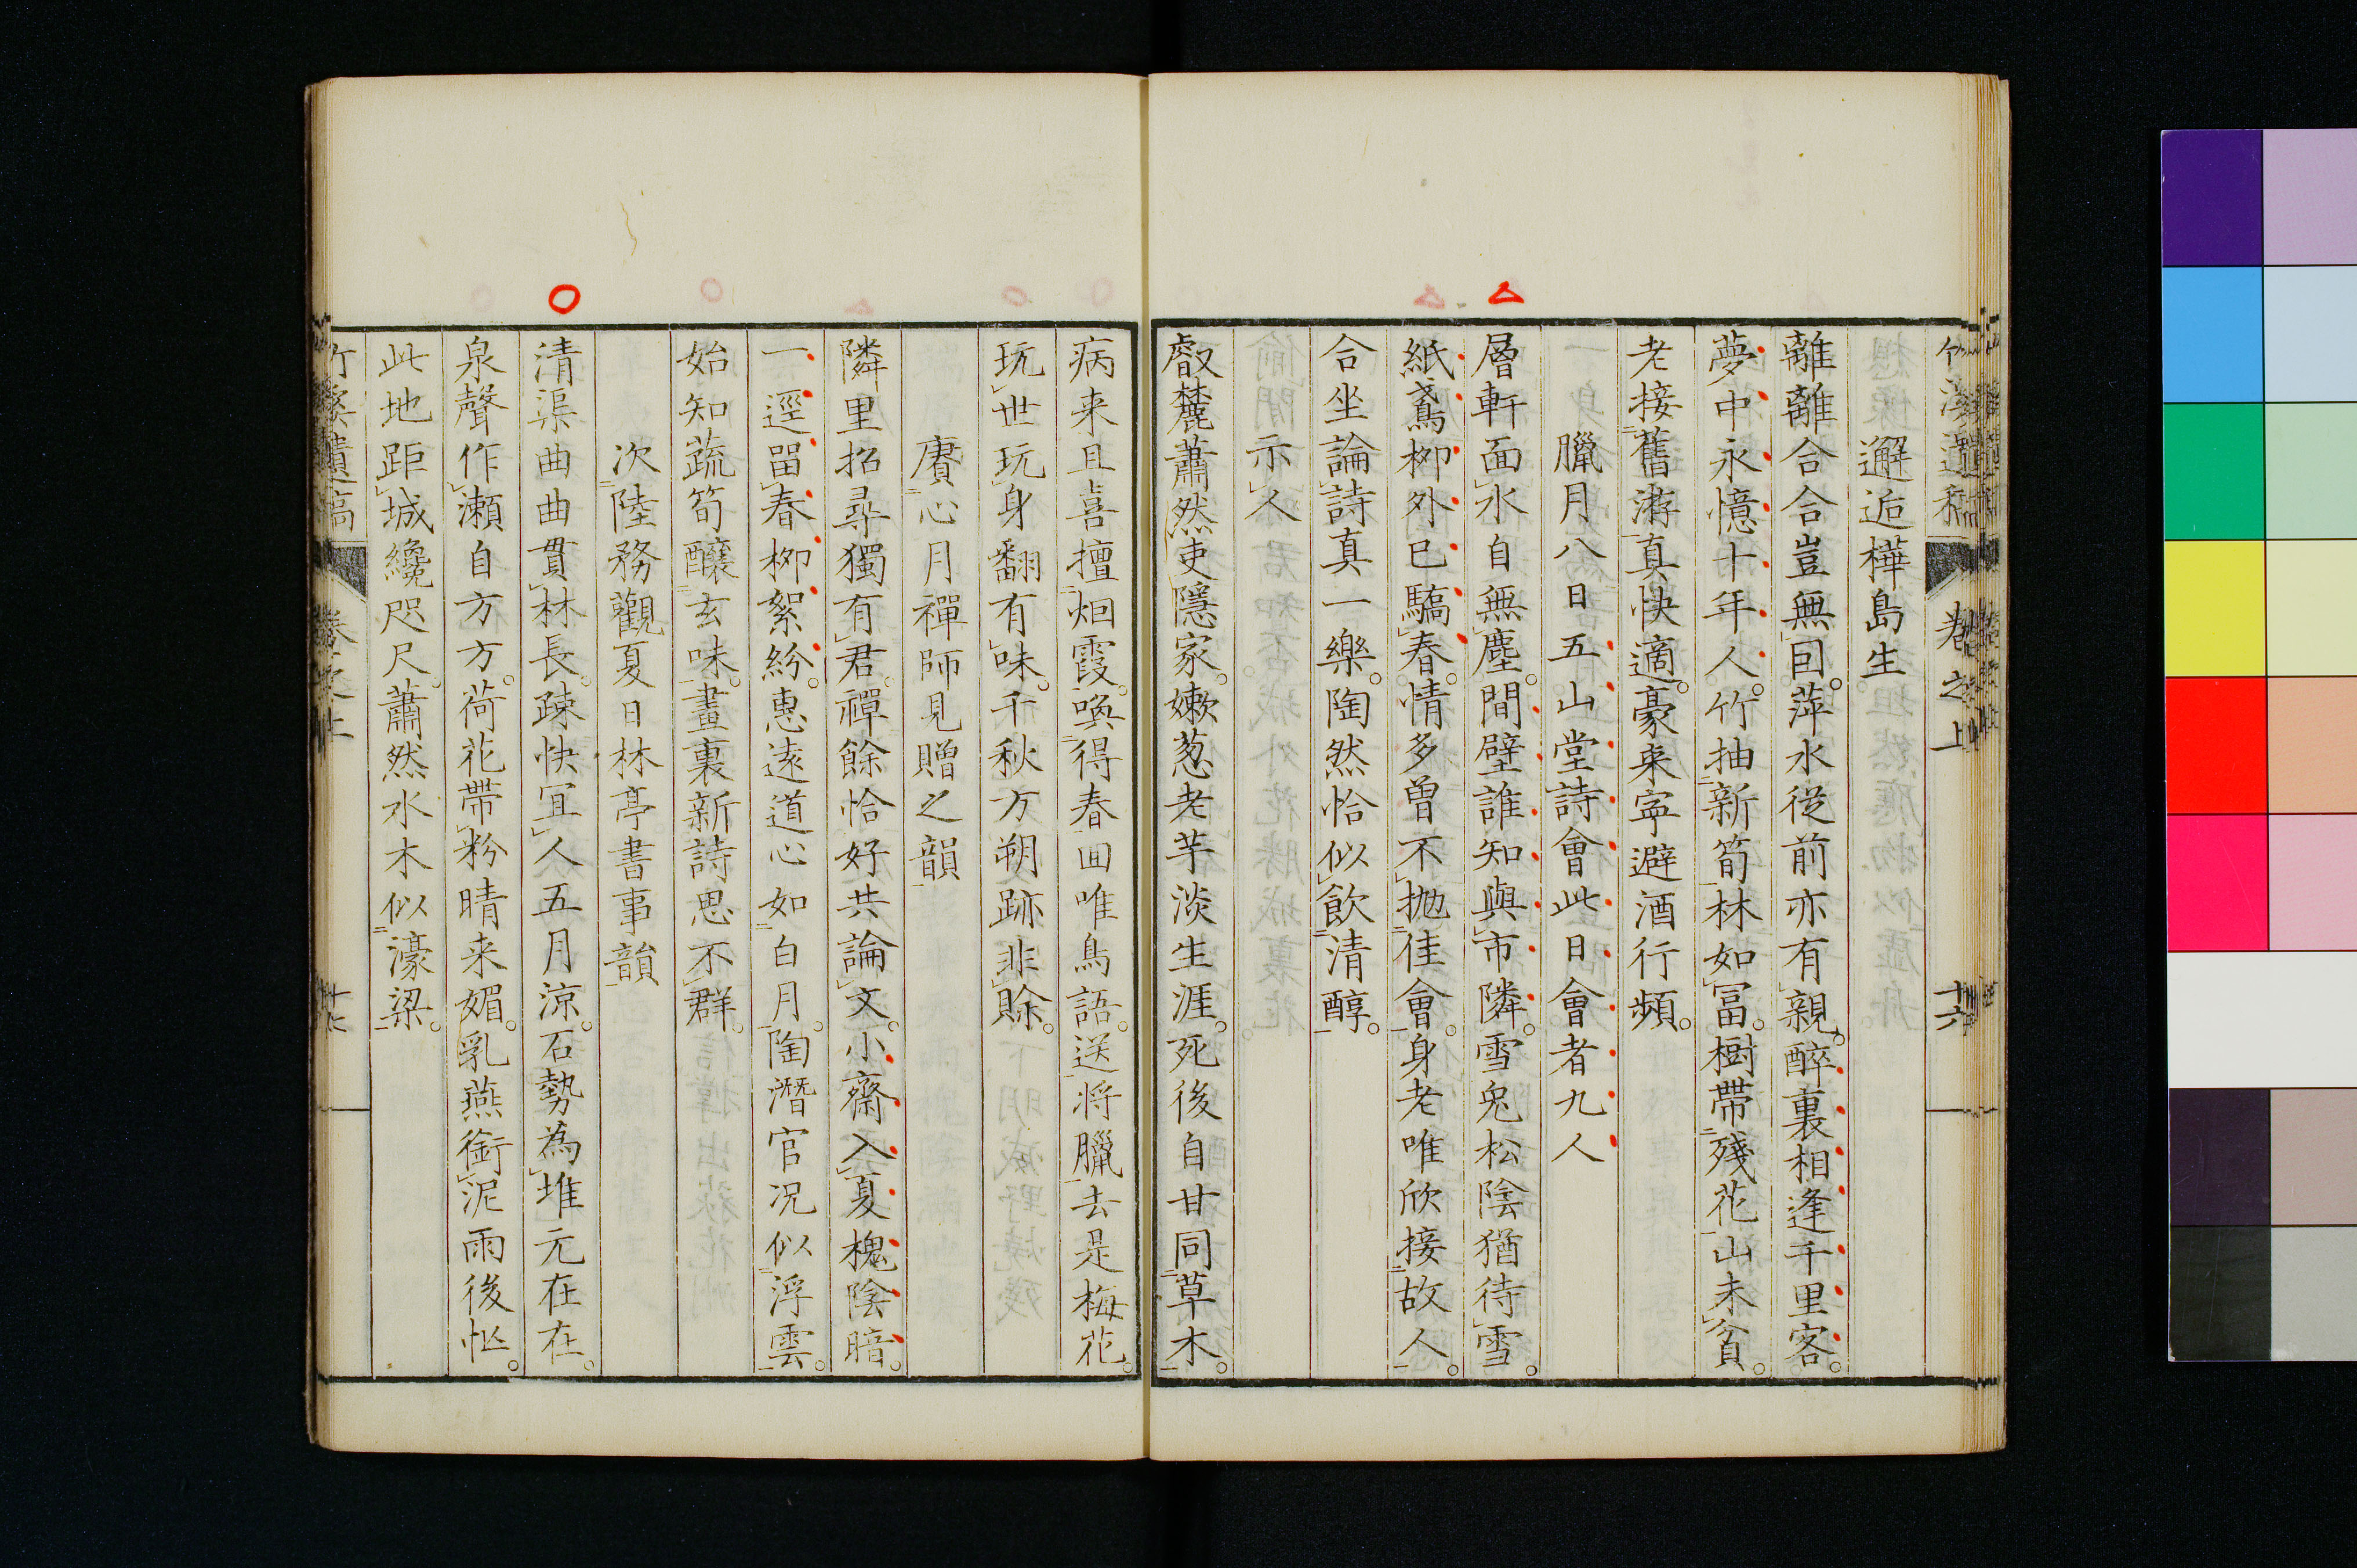 邂逅樺島生
離離合合豈無回。萍水從前亦有親。醉裏相逢千里客。
夢中永憶十年人。竹抽新筍林如冨。樹帶殘花山未貧。
老接舊游真快適。豪來寧避酒行頻。
臘月八日五山堂詩會此日會者九人
層軒面水自無塵。間壁誰知與市隣。雪兔松陰猶待雪。
紙鳶柳外已驕春。情多曽不抛佳會。身老唯欣接故人。
合坐論詩真一樂。陶然恰似飲清醇。
示人
叡麓蕭然吏隱家。嫩葱老芋淡生涯。死後自甘同草木。
病来且喜擅烟霞。喚得春囬唯鳥語。送将臘去是梅花。
玩世玩身翻有味。千秋方朔跡非賒。
賡心月禪師見贈之韻
隣里招尋獨有君。禪餘恰好共論文。小齋入夏槐陰暗。
一逕畱春柳絮紛。惠遠道心如白月。陶潛官况似浮雲。
始知蔬筍釀玄味。畫裏新詩思不群。
次陸務觀夏日林亭書事韻
清渠曲曲貫林長。疎快冝人五月涼。石勢為堆元在在。
泉聲作瀬自方方。荷花帶粉晴来媚。乳燕銜泥雨後忙。
此地距城纔咫尺。蕭然水木似濠梁。
卷之上
十六
竹溪遺稿
卷之上
十七